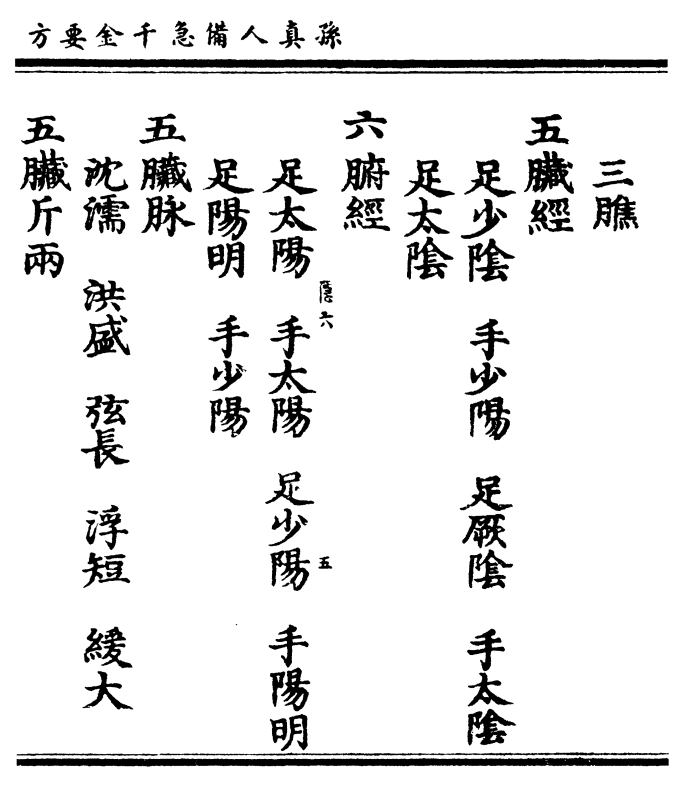 孫真人備急千金要方
三膲
五臟經
足少陰 手少陽 足厥陰 手太陰
足太陰
六腑經
六 五
足太陽 手太陽 足少陽 手陽明
足陽明 手少陽
五臟脉
沈濡 洪盛 弦長 浮短 緩大
五臟斤兩